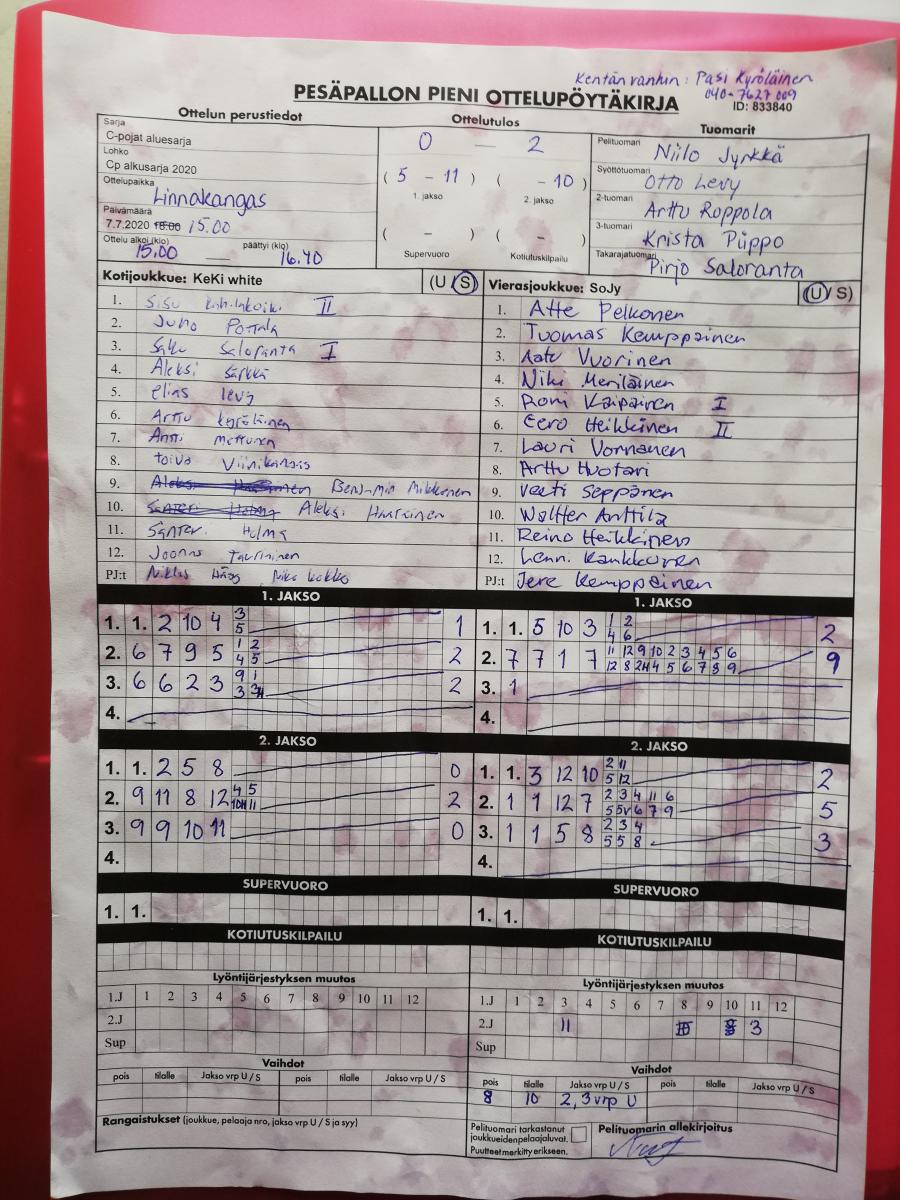 Kentän vanhin: Pasi Kyröläinen
040-7627 009
PESÄPALLON PIENI OTTELUPÖYTÄKIRJA
ID: 833840
Ottelun perustiedot
Sarja
C-pojat aluesarja
Lohko
Cp alkusarja 2020
Ottelupaikka
Linnakangas
Päivämäärä
7.7.2020 18:00 15.00
Ottelu alkoi (klo) päättyi (klo)
15.00 16.40
Ottelutulos
0 — 2
( 5 - 11 ) ( - 10 )
1. jakso 2. jakso
( - ) ( - )
Supervuoro Kotiutuskilpailu
Tuomarit
Pelituomari Niilo Jyrkkä
Syöttötuomari Otto Levy
2-tuomari Arttu Roppola
3-tuomari Krista Piippo
Takarajatuomari Pirjo Saloranta
Kotijoukkue: KeKi white (U / S)
1. Sisu II
2. Juho Pottala
3. Saku Saloranta I
4. Aleksi Särkkä
5. Elias Levy
6. Arttu Kyröläinen
7. Antti Mettunen
8. Toivo
9. Benjamin Mikkonen
10. Aleksi
11. Santeri Holma
12. Joonas
PJ:t Niklas Kokko
Vierasjoukkue: SoJy (U / S)
1. Atte Pelkonen
2. Tuomas Kemppainen
3. Aatu Vuorinen
4. Niki Meriläinen
5. Roni Kaipainen I
6. Eero Heikkinen II
7. Lauri Vornanen
8. Arttu Huotari
9. Veeti Seppänen
10. Waltter Anttila
11. Reino Heikkinen
12. Lenni
PJ:t Jere Kemppainen
1. JAKSO
1. 1. 2 10 4 3 5 1
2. 6 7 9 5 1 2 4 5 2
3. 6 6 2 3 9 1 3 3H 2
4.
1. JAKSO
1. 1. 5 10 3 1 2 4 6 2
2. 7 7 1 7 11 12 9 10 2 3 4 5 6 9
12 8 2H 4 5 6 7 8 9
3. 1
4.
2. JAKSO
1. 1. 2 5 8 0
2. 9 11 8 12 4 5 10H 11 2
3. 9 9 10 11 0
4.
2. JAKSO
1. 1. 3 12 10 2 11 5 12 2
2. 1 1 12 7 2 3 4 11 6 5
5 5V 6 7 9
3. 1 1 5 8 2 3 4 3
5 5 8
4.
SUPERVUORO
1. 1.
SUPERVUORO
1. 1.
KOTIUTUSKILPAILU
KOTIUTUSKILPAILU
Lyöntijärjestyksen muutos
1.J 1 2 3 4 5 6 7 8 9 10 11 12
2.J
Sup
Lyöntijärjestyksen muutos
1.J 1 2 3 4 5 6 7 8 9 10 11 12
2.J 11 3
Sup
Vaihdot
pois tilalle Jakso vrp U / S pois tilalle Jakso vrp U / S
Vaihdot
pois tilalle Jakso vrp U / S pois tilalle Jakso vrp U / S
8 10 2, 3 vrp U
Rangaistukset (joukkue, pelaaja nro, jakso vrp U / S ja syy)
Pelituomari tarkastanut
joukkueiden pelaajaluvat.
Puutteet merkitty erikseen.
Pelituomarin allekirjoitus